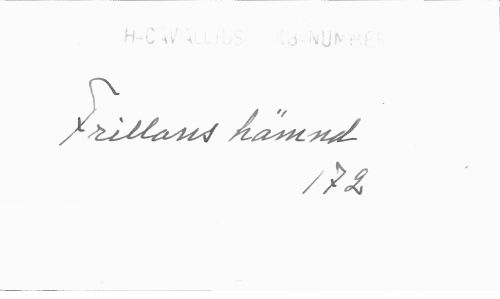 H-CAVALLIUS KB-NUMMER
Frillans hämnd
172